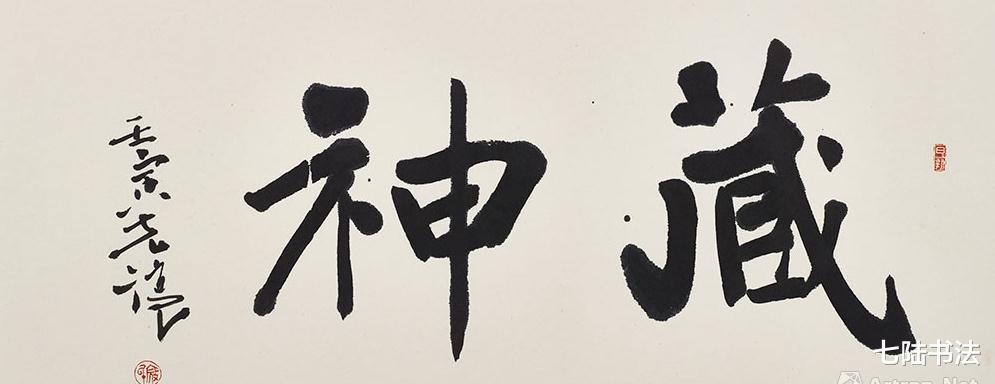 藏神
壬寅
七陆书法
Artron.Net